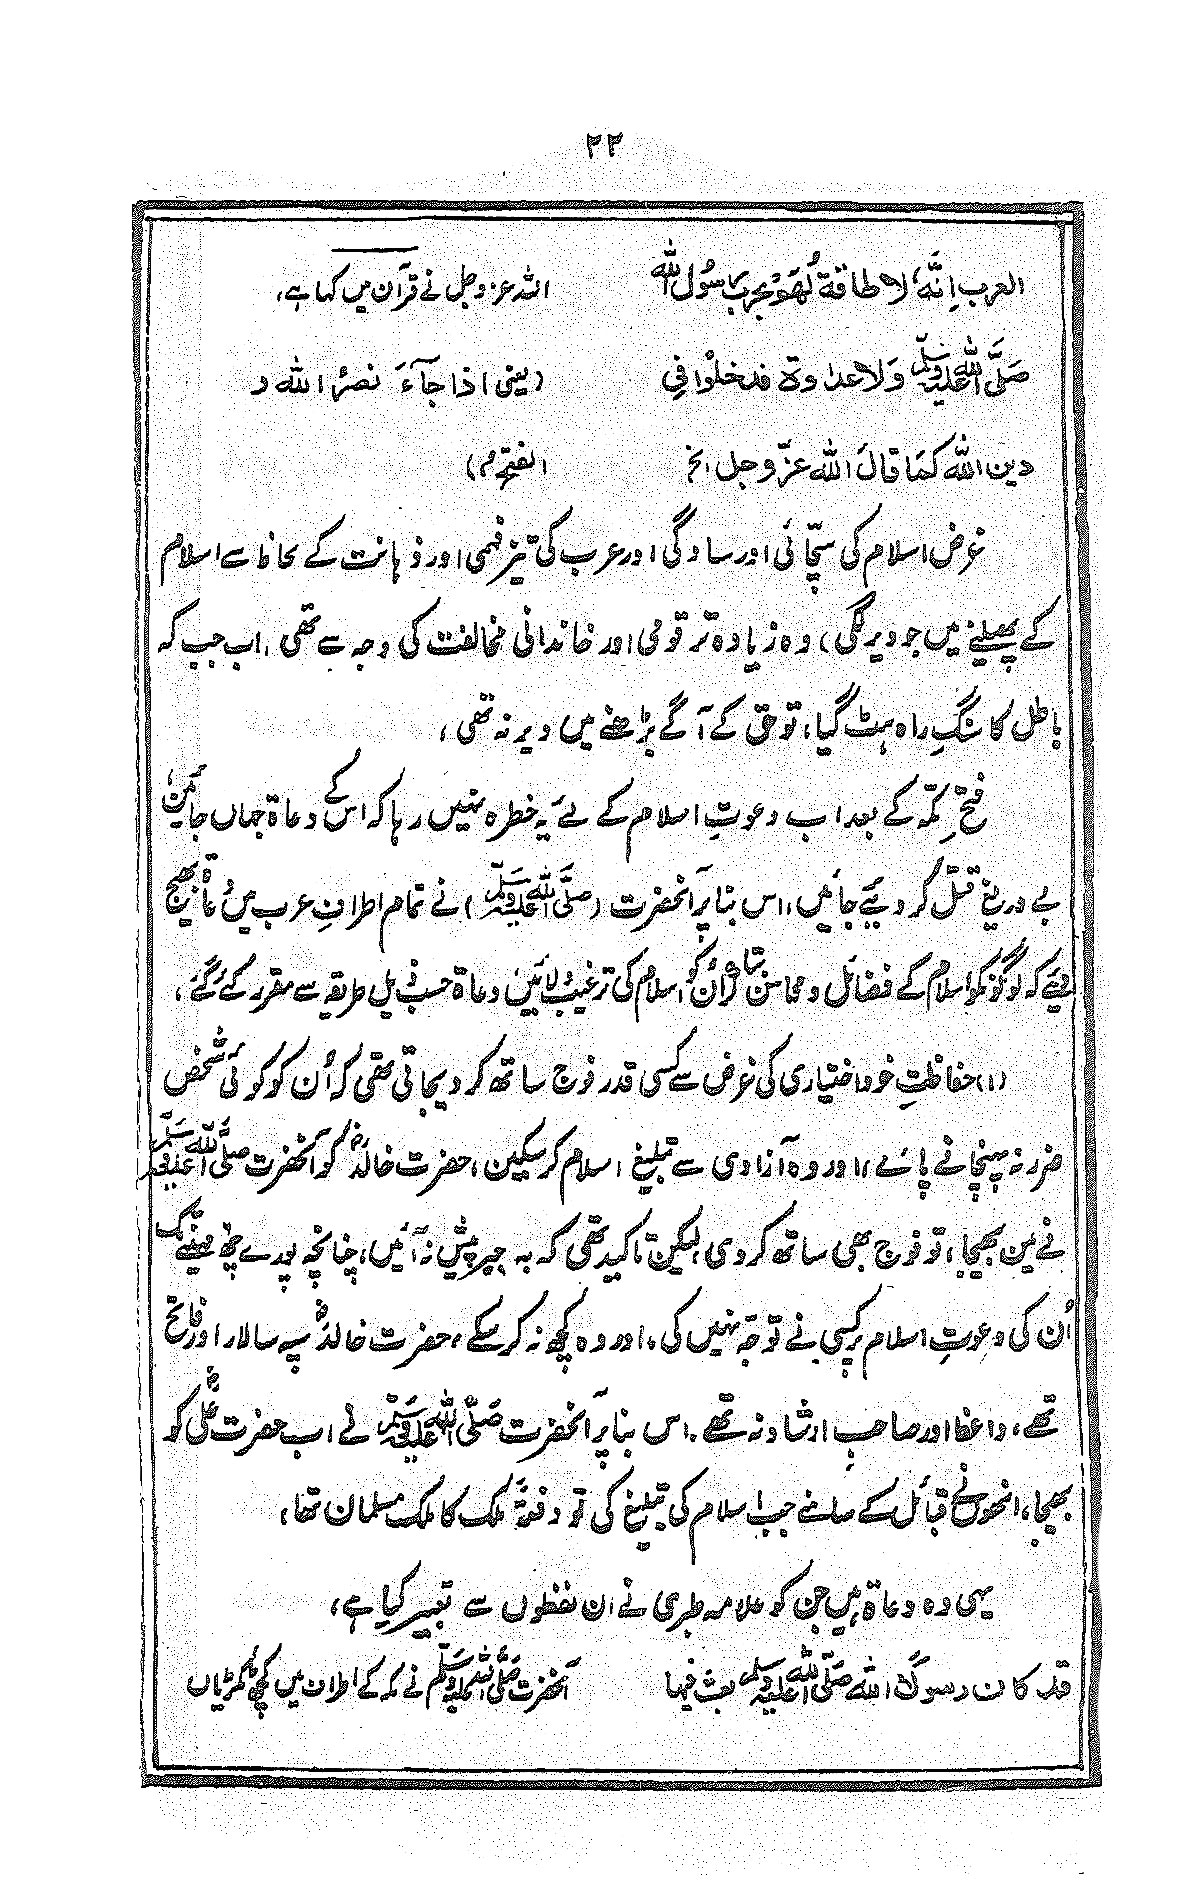 ۲۲
العرب اِنَّهٗ لاطاقة لَهُمْ بحرب رَسُول الله اللہ عزوجل نے قرآن میں کہا ہے،
صَلَّی اللہُ عَلَیْہِ وَسَلَّمَ وَلا عداوة فدخلوا فِی (یعنی اذا جآءَ نصرُ اللہ و
دین اللہ کمَا قالَ اللہ عزّ وجل الخ الفتح م)
غرض اسلام کی سچّائی اور سادگی اور عرب کی تیز فہمی اور ذہانت کے لحاظ سے اسلام
کے پھیلنے میں جو دیر لگی، وہ زیادہ تر قومی اور خاندانی مخالفت کی وجہ سے تھی، اب جب کہ
باطل کا سنگِ راہ ہٹ گیا، تو حق کے آگے بڑھنے میں دیر نہ تھی،
فتحِ مکّہ کے بعد اب دعوتِ اسلام کے لئے یہ خطرہ نہیں رہا کہ اس کے دعاة جہاں جائیں
بے دریغ قتل کر دیئے جائیں، اس بنا پر آنحضرت (صَلَّی اللہُ عَلَیْہِ وَسَلَّمَ) نے تمام اطرافِ عرب میں دُعاة بھیج
دیئے کہ لوگونکو اسلام کے فضائل و محاسن بتا کر اُن کو اسلام کی ترغیب دلائیں، دعاة حسبِ ذیل طریقہ سے مقرر کئے گئے،
(۱) حفاظتِ خود اختیاری کی غرض سے کسی قدر فوج ساتھ کر دیجاتی تھی کہ اُن کو کوئی شخص
ضرر نہ پہنچانے پائے، اور وہ آزادی سے تبلیغِ اسلام کر سکیں، حضرت خالدؓ کو آنحضرت صَلَّی اللہُ عَلَیْہِ وَسَلَّم
نے یمن بھیجا، تو فوج بھی ساتھ کر دی، لیکن تاکید تھی کہ بہ جبر پیش نہ آئیں، چنانچہ پورے چھ مہینے تک
اُن کی دعوتِ اسلام پر کسی نے توجّہ نہیں کی، اور وہ کچھ نہ کر سکے، حضرت خالدؓ سپہ سالار اور فاتح
تھے، واعظ اور صاحبِ ارشاد نہ تھے، اس بنا پر آنحضرت صَلّی اللہُ عَلَیْہِ وَسَلَّم نے اب حضرت علیؓ کو
بھیجا، انھوں نے قبائل کے سامنے جب اسلام کی تبلیغ کی تو دفعۃً ملک کا ملک مسلمان تھا،
یہی وہ دعاة ہیں جن کو علامہ طبری نے ان لفظوں سے تعبیر کیا ہے،
قد کان رسول اللہ صَلَّی اللہُ عَلَیْہِ وَسَلَّم بعث فیما آنحضرت صَلَّی اللہُ عَلَیْہِ وَسَلَّم نے مکہ کے اطراف میں کچھ ٹکڑیاں